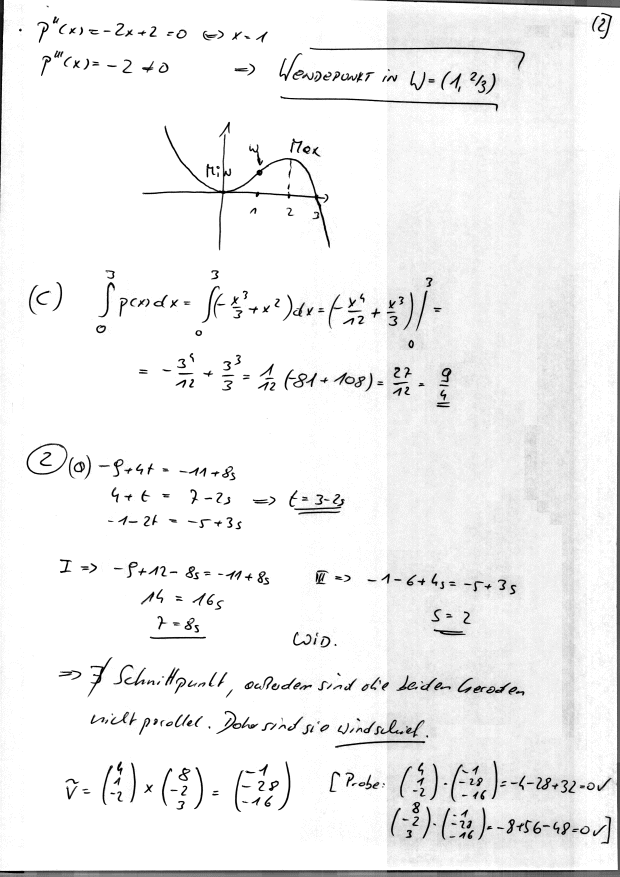 [2]
· p''(x) = -2x+2 = 0 ⇔ x = 1
p'''(x) = -2 ≠ 0 ⇒ WENDEPUNKT IN W = (1, 2/3)
W Max
Min
1 2 3
(C) ∫₀³ p(x)dx = ∫₀³ (-x³/3 + x²)dx = (-x⁴/12 + x³/3)|₀³ =
= -3⁴/12 + 3³/3 = 1/12 (-81 + 108) = 27/12 = 9/4
② (a) -9+4t = -11+8s
4+t = 7-2s ⇒ t = 3-2s
-1-2t = -5+3s
I ⇒ -9+12-8s = -11+8s III ⇒ -1-6+4s = -5+3s
14 = 16s s = 2
7 = 8s WiD.
⇒ ∄ Schnittpunkt, außerdem sind die beiden Geraden
nicht parallel. Daher sind sie windschief.
ṽ = (4 1 -2) × (8 -2 3) = (-1 -28 -16) [Probe: (4 1 -2) · (-1 -28 -16) = -4-28+32=0 ✓
(8 -2 3) · (-1 -28 -16) = -8+56-48=0 ✓]